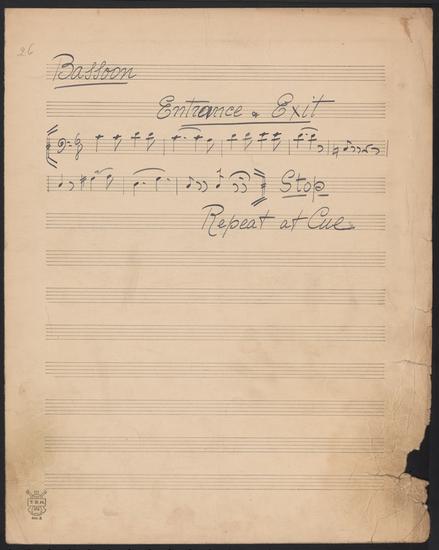 26
Bassoon
Entrance & Exit
Stop
Repeat at Cue